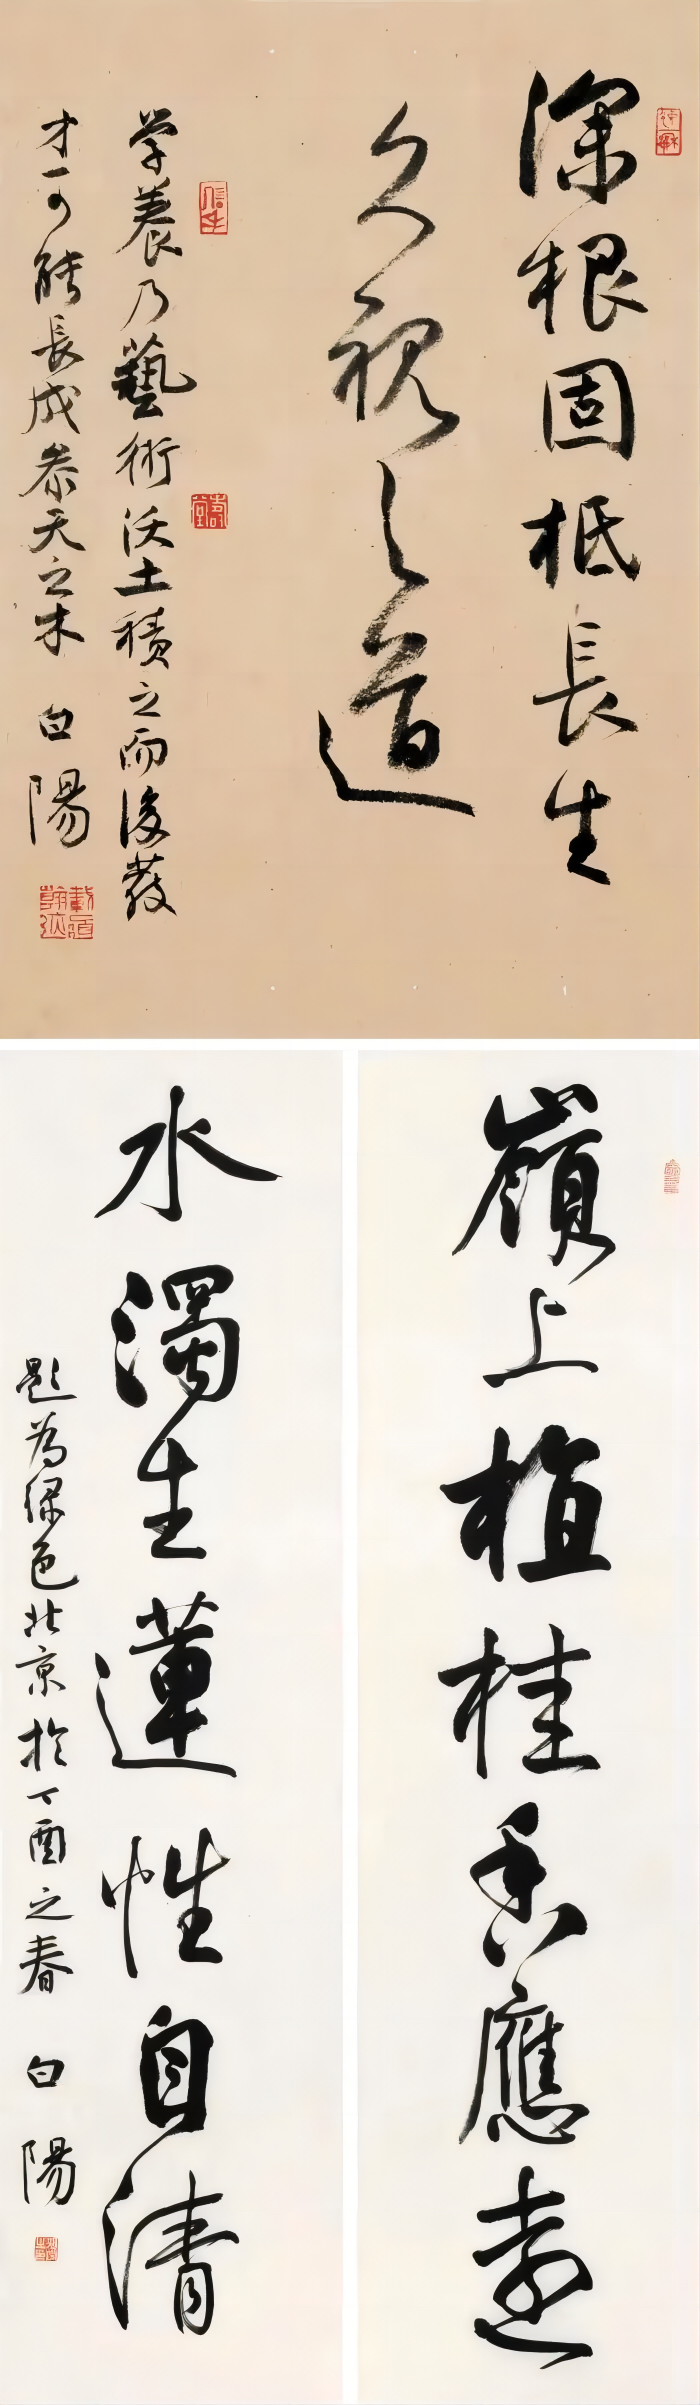 深根固柢長生
久視之道
学養乃藝術沃土積之而後發
才可能長成参天之木 白陽
嶺上植桂香應遠
水濁生蓮性自清
題為綠色北京於丁酉之春 白陽